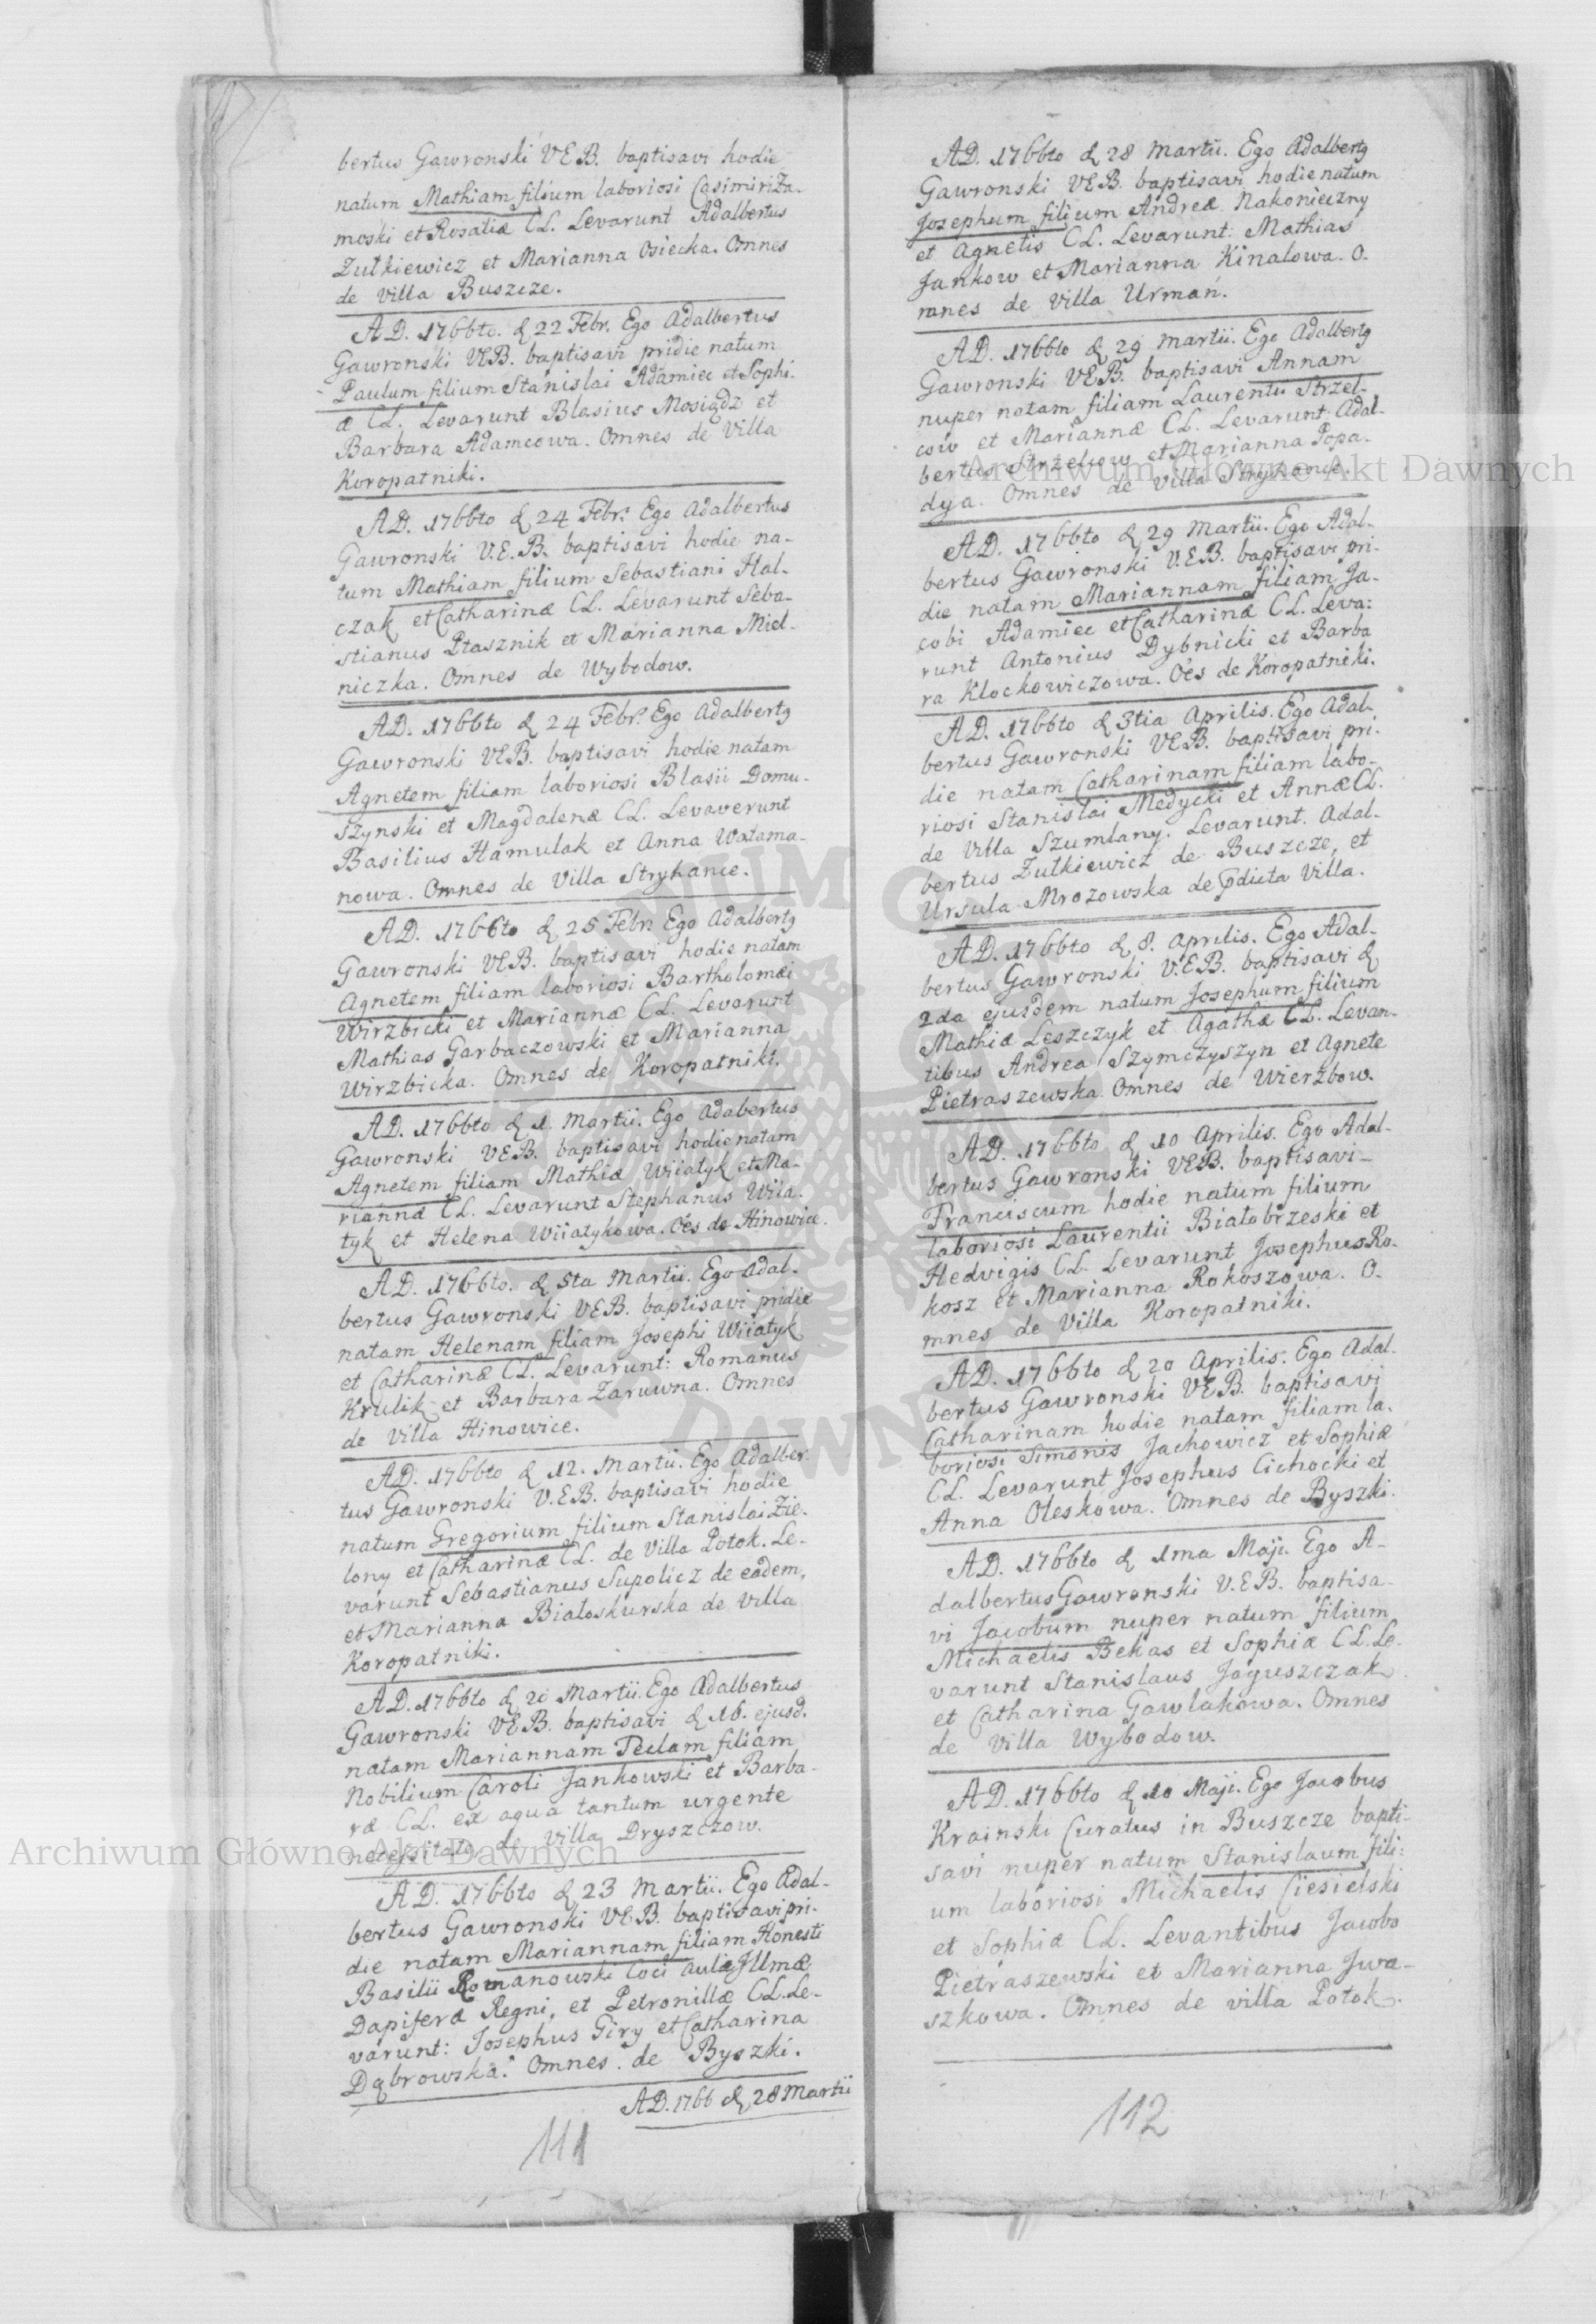 bertus Gawronski VEB. baptisavi hodie
natum Mathiam filium laboriosi Casimiri Za-
moski et Rosaliæ CL. Levarunt Adalbertus
Zulkiewicz et Marianna Osiecka. Omnes
de Villa Buszcze.
AD. 1766to. d 22 Febr. Ego Adalbertus
Gawronski VEB. baptisavi pridie natum
Paulum filium Stanislai Adamiec et Sophi-
æ CL. Levarunt Blasius Mosiądz et
Barbara Adamcowa. Omnes de Villa
Koropatniki.
AD. 1766to d 24 Febr. Ego Adalbertus
Gawronski V.E.B. baptisavi hodie na-
tum Mathiam filium Sebastiani Hal-
czak et Catharinæ CL. Levarunt Seba-
stianus Ptasznik et Marianna Miel-
niczka. Omnes de Wybodow.
AD. 1766to d 24 Febr. Ego Adalbertq
Gawronski VEB. baptisavi hodie natam
Agnetem filiam laboriosi Blasii Domu-
szynski et Magdalenæ CL. Levaverunt
Basilius Hamulak et Anna Watama-
nowa. Omnes de Villa Stryhance.
AD. 1766to d 25 Febr. Ego Adalbertq
Gawronski VEB. baptisavi hodie natam
Agnetem filiam laboriosi Bartholomæi
Wirzbicki et Mariannæ CL. Levarunt
Mathias Garbaczowski et Marianna
Wirzbicka. Omnes de Koropatniki.
AD. 1766to d 1. Martii. Ego Adabertus
Gawronski VEB. baptisavi hodie natam
Agnetem filiam Mathiæ Wiiatyk et Ma-
riannæ CL. Levarunt Stephanus Wiia-
tyk et Helena Wiiatykowa. Oes de Hinowice.
AD. 1766to. d 5ta Martii. Ego Adal-
bertus Gawronski VEB. baptisavi pridie
natam Helenam filiam Josephi Wiiatyk
et Catharinæ CL. Levarunt: Romanus
Krulik et Barbara Zaruwna. Omnes
de Villa Hinowice.
AD. 1766to d 12. Martii. Ego Adalber-
tus Gawronski V.E.B. baptisavi hodie
natum Gregorium filium Stanislai Zie-
lony et Catharinæ CL. de Villa Potok. Le-
varunt Sebastianus Supolicz de eadem,
et Marianna Białoskurska de Villa
Koropatniki.
AD. 1766to d 20 Martii. Ego Adalbertus
Gawronski VEB. baptisavi d 16. ejusd.
natam Mariannam Teclam filiam
Nobilium Caroli Jankowski et Barba-
ræ CL. ex aqua tantum urgente
necessitate, de Villa Dryszczow.
AD. 1766to d 23 Martii. Ego Adal-
bertus Gawronski VEB. baptisavi pri-
die natam Mariannam filiam Honesti
Basilii Romanowski Coci Aulæ Illmæ
Dapiferæ Regni, et Petronillæ CL. Le-
varunt: Josephus Giry et Catharina
Dąbrowska. Omnes de Byszki.
AD. 1766 d 28 Martii
111
AD. 1766to d 28 Martii. Ego Adalbertq
Gawronski VEB. baptisavi hodie natum
Josephum filium Andreæ Nakonieczny
et Agnetis CL. Levarunt: Mathias
Jankow et Marianna Kinalowa. O-
mnes de Villa Urman.
AD. 1766to d 29 Martii. Ego Adalbertq
Gawronski VEB. baptisavi Annam
nuper natam filiam Laurentii Strzel-
cow et Mariannæ CL. Levarunt. Adal-
bertus Strzelcow et Marianna Popa-
dya. Omnes de Villa Stryhance.
AD. 1766to d 29 Martii. Ego Adal-
bertus Gawronski V.E.B. baptisavi pri-
die natam Mariannam filiam Ja-
cobi Adamiec et Catharinæ CL. Leva:
runt Antonius Dybnicki et Barba
ra Klockowiczowa. Oes de Koropatniki.
AD. 1766to d 3tia Aprilis. Ego Adal-
bertus Gawronski VEB. baptisavi pri-
die natam Catharinam filiam labo-
riosi Stanislai Medycki et Annæ CL.
de Villa Szumlany. Levarunt. Adal-
bertus Zulkiewicz de Buszcze, et
Ursula Mrozowska de pdicta Villa.
AD. 1766to d 8. Aprilis. Ego Adal-
bertus Gawronski V.E.B. baptisavi d
2da ejusdem natum Josephum filium
Mathiæ Leszczyk et Agathæ CL. Levan-
tibus Andrea Szymczyszyn et Agnete
Pietraszewska. Omnes de Wierzbow.
AD. 1766to d 10 Aprilis. Ego Adal-
bertus Gawronski VEB. baptisavi
Franciscum hodie natum filium
laboriosi Laurentii Białobrzeski et
Hedvigis CL. Levarunt Josephus Ro-
kosz et Marianna Rokoszowa. O-
mnes de Villa Koropatniki.
AD. 1766to d 20 Aprilis. Ego Adal-
bertus Gawronski VEB. baptisavi
Catharinam hodie natam filiam la-
boriosi Simonis Jachowicz et Sophiæ
CL. Levarunt Josephus Cichocki et
Anna Oleskowa. Omnes de Byszki.
AD. 1766to d 1ma Maji. Ego A-
dalbertus Gawronski V.E.B. baptisa-
vi Jacobum nuper natum filium
Michaelis Bekas et Sophiæ CL. Le-
varunt Stanislaus Jaguszczak
et Catharina Gawlakowa. Omnes
de Villa Wybodow.
AD. 1766to d 10 Maji. Ego Jacobus
Krainski Curatus in Buszcze bapti-
savi nuper natum Stanislaum fili:
um laboriosi Michaelis Ciesielski
et Sophiæ CL. Levantibus Jacobo
Pietraszewski et Marianna Iwa-
szkowa. Omnes de villa Potok.
112
Archiwum Główne Akt Dawnych
Archiwum Główne Akt Dawnych